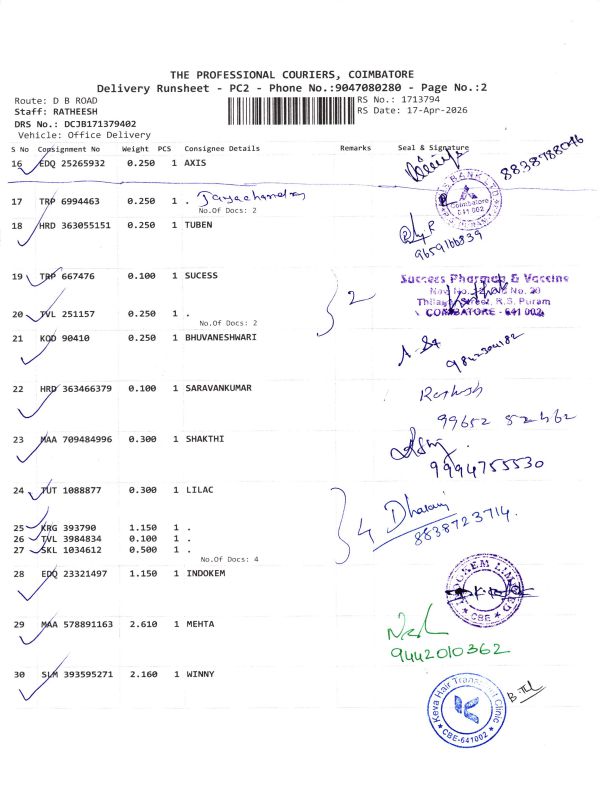 THE PROFESSIONAL COURIERS, COIMBATORE
Delivery Runsheet - PC2 - Phone No.:9047080280 - Page No.:2
Route: D B ROAD
RS No.: 1713794
Staff: RATHEESH
RS Date: 17-Apr-2026
DRS No.: DCJB171379402
Vehicle: Office Delivery
S No Consignment No Weight PCS Consignee Details Remarks Seal & Signature
16 EDQ 25265932 0.250 1 AXIS
8838788046
17 TRP 6994463 0.250 1 . Jayachandran
No.Of Docs: 2
BANK LTD
Coimbatore
641 002
18 HRD 363055151 0.250 1 TUBEN
9659166839
19 TRP 667476 0.100 1 SUCESS
Success Pharmacy & Vaccine
No. 20
Street, R.S. Puram
COIMBATORE - 641 002
2
20 TVL 251157 0.250 1 .
No.Of Docs: 2
21 KOD 90410 0.250 1 BHUVANESHWARI
22 HRD 363466379 0.100 1 SARAVANKUMAR
99652 52462
23 MAA 709484996 0.300 1 SHAKTHI
9994755530
24 TUT 1088877 0.300 1 LILAC
4 Dharani
8838723714.
25 KRG 393790 1.150 1 .
26 TVL 3984834 0.100 1 .
27 SKL 1034612 0.500 1 .
No.Of Docs: 4
28 EDQ 23321497 1.150 1 INDOKEM
INDOKEM LIMITED
CBE
29 MAA 578891163 2.610 1 MEHTA
9442010362
30 SLM 393595271 2.160 1 WINNY
Keva Hair Transplant Clinic
CBE-641002